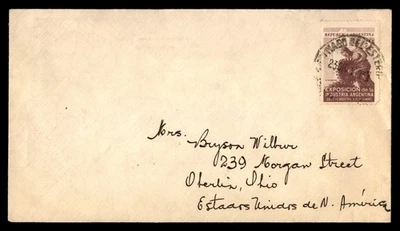 REPUBLICA ARGENTINA
SANTIAGO DEL ESTERO
EXPOSICION de la
INDUSTRIA ARGENTINA
Mrs. Bryson Wilbur
239 Morgan Street
Oberlin, Ohio
Estados Unidos de N. América